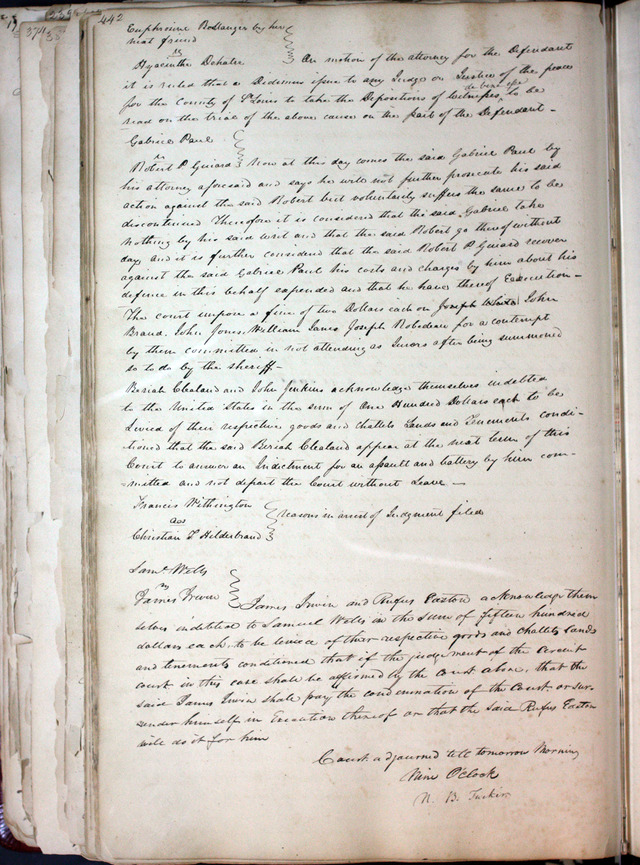 442
Euphrosine Bollanger by her
next friend
vs
Hyacinthe Dehatre } On motion of the attorney for the Defendant
it is ruled that a Dedimus issue to any Judge or Justice of the peace
for the County of St Louis to take the Depositions of Witnesses de bene esse to be
read on the trial of the above cause on the part of the Defendant -
Gabriel Paul
vs
Robert P Guiard } Now at this day comes the said Gabriel Paul by
his attorney aforesaid and says he will not further prosecute his said
action against the said Robert but voluntarily suffers the same to be
discontinued Therefore it is considered that the said Gabriel take
nothing by his said writ and that the said Robert go thereof without
day and it is further considered that the said Robert P Guiard recover
against the said Gabriel Paul his costs and charges by him about his
defence in this behalf expended and that he have thereof Execution -
The court impose a fine of two Dollars each on Joseph White John
Braud. John Jones, William Lanes Joseph Robedeau for a contempt
by them committed in not attending as Jurors after being summoned
so to do by the sheriff -
Beriah Clealand and John Jenkins acknowledge themselves indebted
to the United States in the sum of One Hundred Dollars each to be
Levied of their respective goods and chattels Lands and Tenements condi-
tioned that the said Beriah Clealand appear at the next term of this
Court to answer an Indictment for an assault and battery by him com-
-mitted and not depart the Court without Leave -
Francis Withington
ads
Christian T Hilderbrand } reasons in arrest of Judgment filed
Saml Wells
vs
James Irwin } James Irwin and Rufus Easton acknowledge them
selves indebted to Samuel Wells in the sum of fifteen hundred
dollars each, to be levied of their respective goods and chattels Lands
and tenements conditioned that if the judgement of the Circuit
court in this case shall be affirmed by the Court above, that the
said James Irwin shall pay the condemnation of the Court or sur-
render himself in Execution thereof or that the said Rufus Easton
will do it for him
Court adjourned till tomorrow Morning
Nine O'Clock
N. B. Tucker